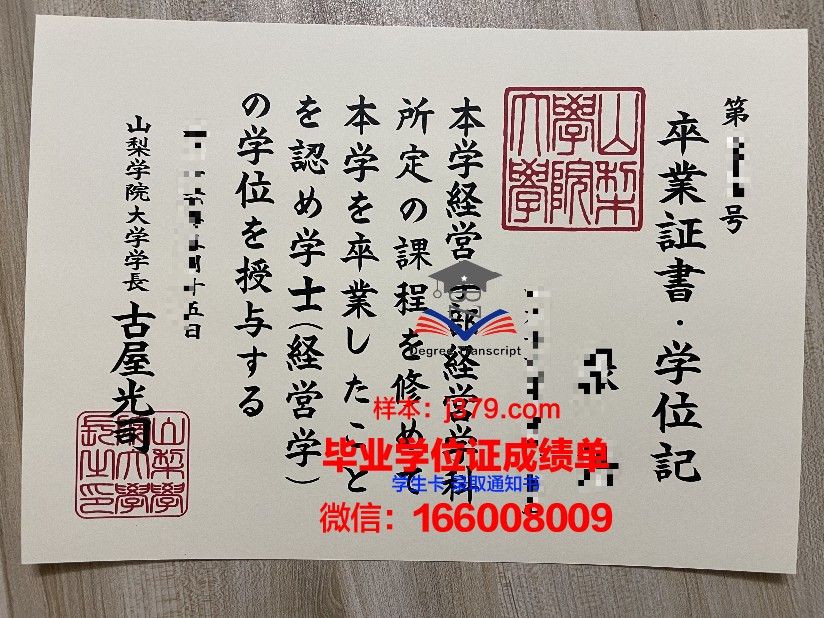 第 号
卒業証書・学位記
山梨
學院
大學
本学経営学部経営学科
所定の課程を修めて
本学を卒業したこと
を認め学士(経営学)
の学位を授与する
月十五日
山梨学院大学学長 古屋光司
山梨學
院大學
長之印
Degree Transcript
样本：j379.com
毕业学位证成绩单
学生卡 录取通知书
微信：166008009